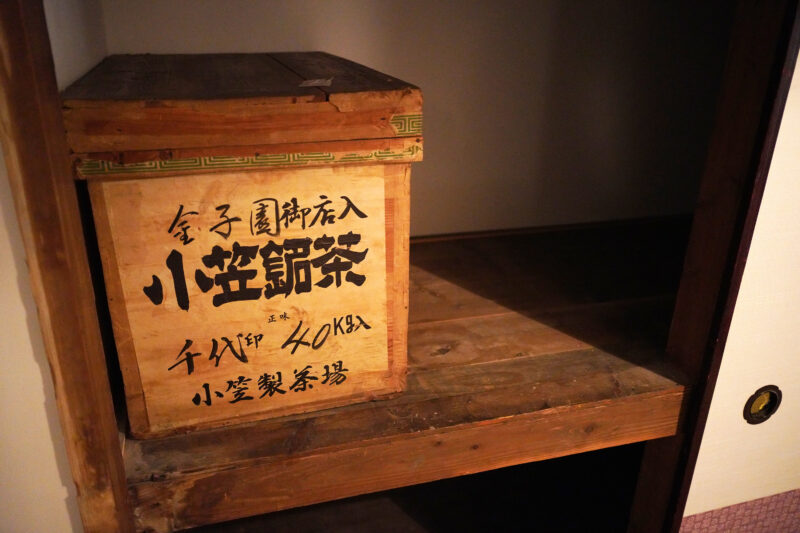 金子園御店入
小笠銘茶
正味
千代印 40Kg入
小笠製茶場